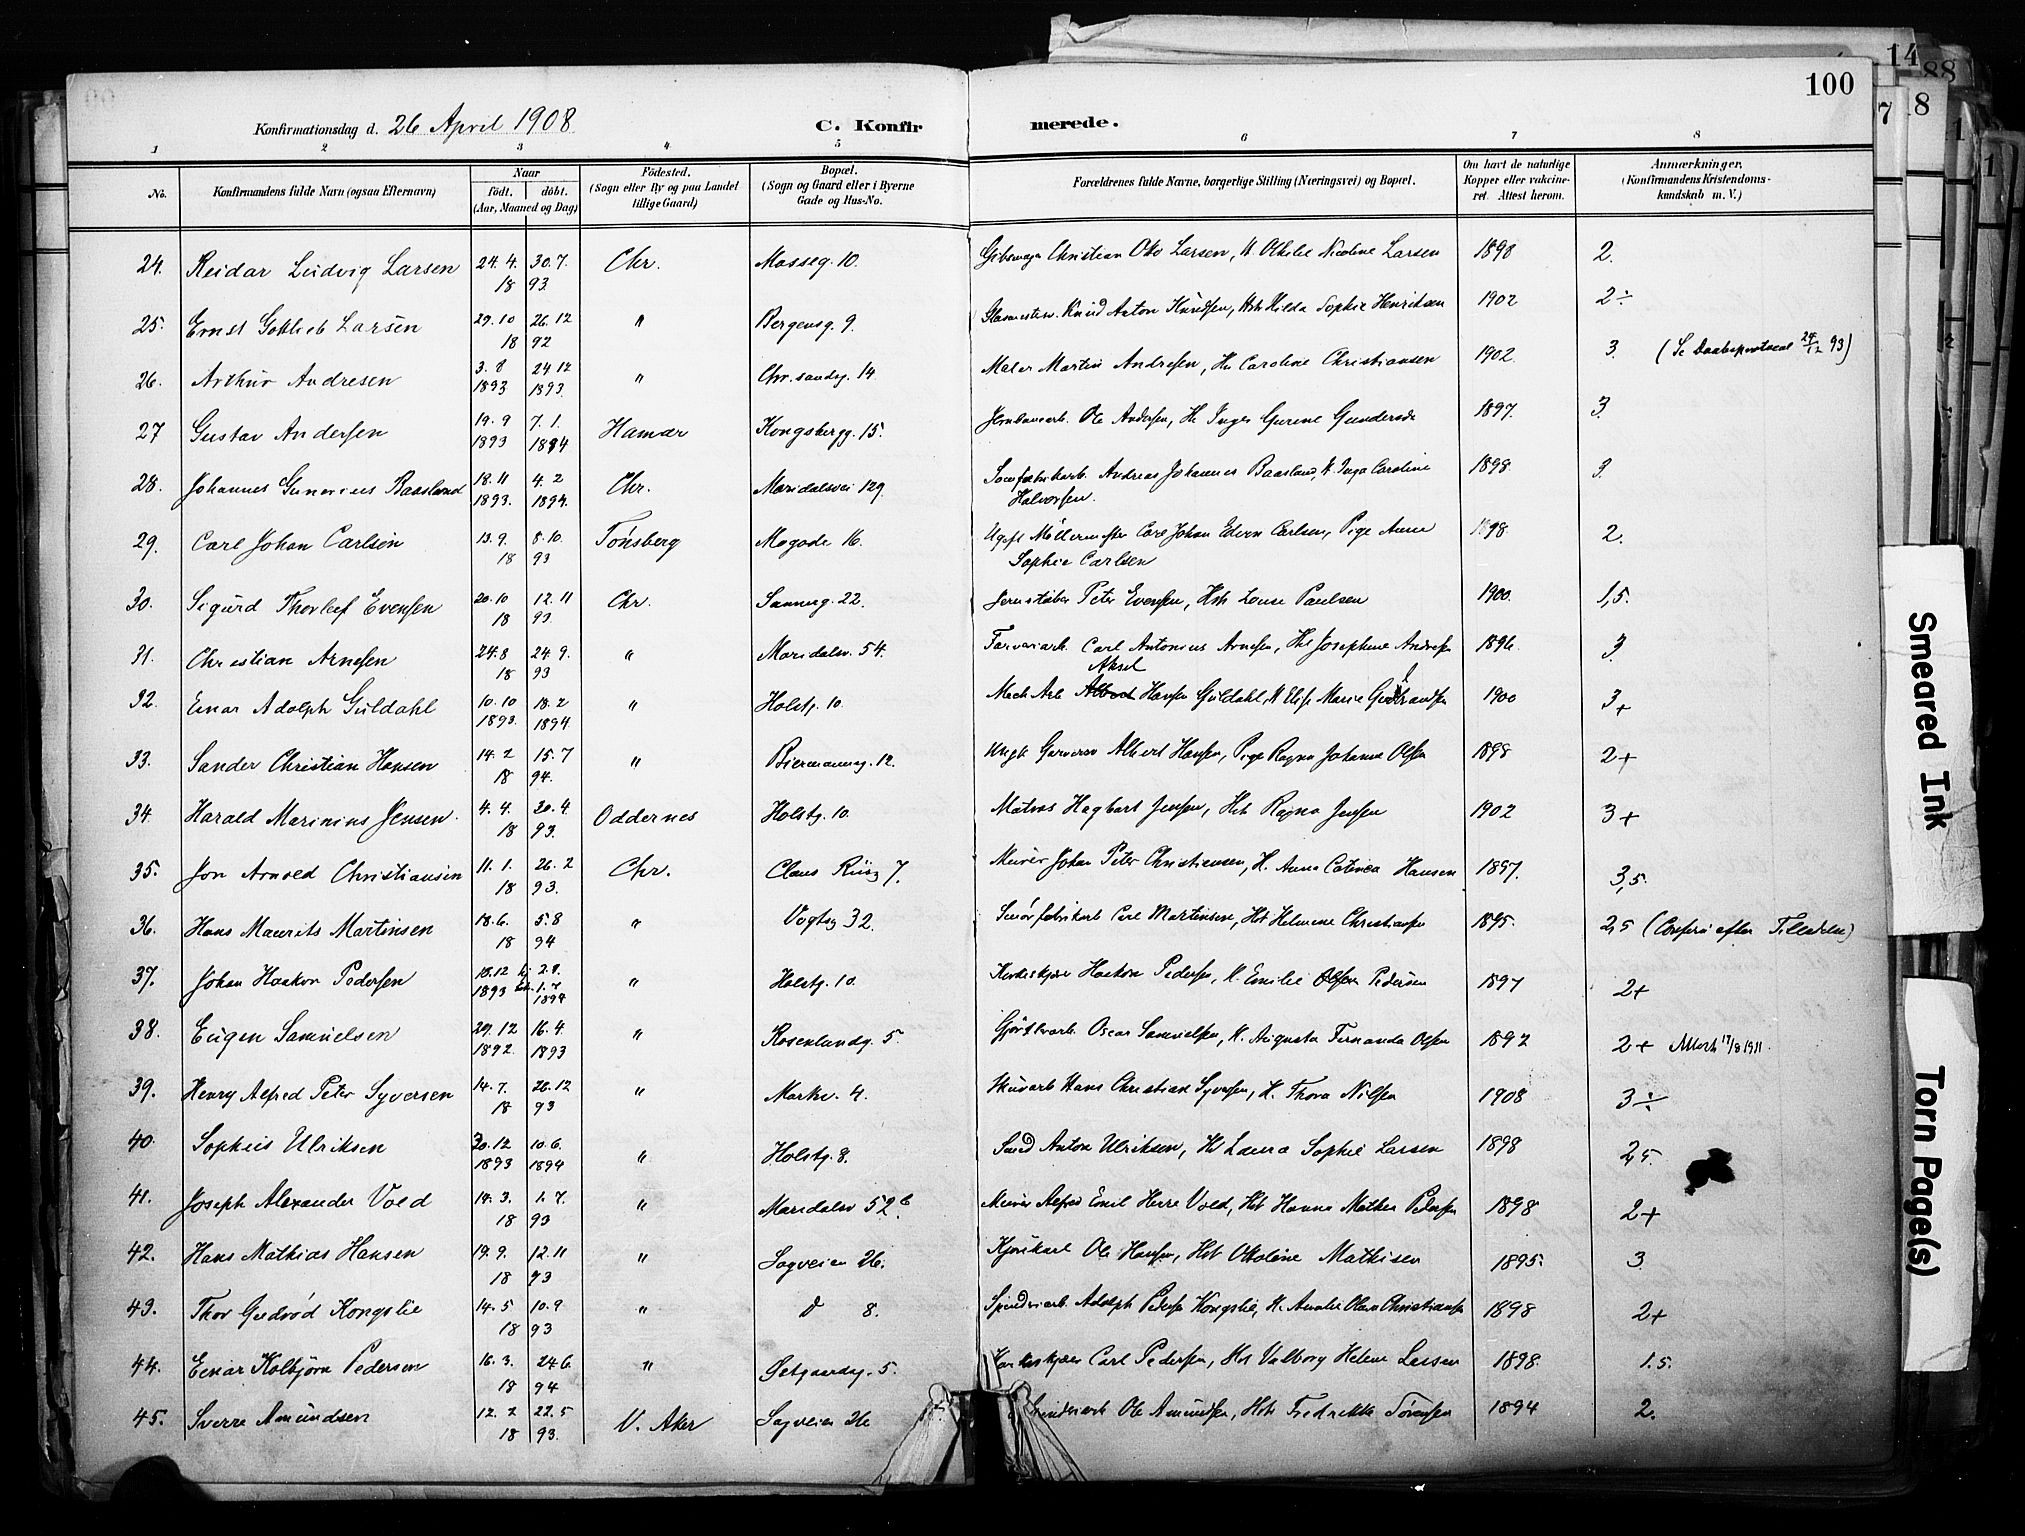 100
Konfirmationsdag d. 26 April 1908
C. Konfirmerede.
1 2 3 4 5 6 7 8
No. Konfirmandens fulde Navn (ogsaa Efternavn) Naar født. døbt. (Aar, Maaned og Dag) Fødested. (Sogn eller By og paa Landet tillige Gaard) Bopæl. (Sogn og Gaard eller i Byerne Gade og Hus-No. Forældrenes fulde Navne, borgerlige Stilling (Næringsvei) og Bopæl. Om havt de naturlige Kopper eller vaccineret. Attest herom. Anmærkninger. (Konfirmandens Kristendomskundskab m. V.)
24. Reidar Ludvig Larsen 24.4. 30.7. 18 93. Chr. Mosseg. 10. Christian Otto Larsen, H. Othilie Nicoline Larsen 1898 2.
25. Ernst Gotlieb Larsen 29.10 26.12 18 92 " Bergensg. 9. Knud Anton Knudsen, Hst Hilda Sophie Henriksen 1902 2÷
26. Arthur Andresen 3.8 1893 24 12 1893. " Chr.sandsg. 14. Maler Martin Andresen, Hst Caroline Christiansen 1902. 3. (Se Daabsprotocol 24/12 93)
27 Gustav Andersen 19.9 1893 7.1. 1894 Hamar Kongsbergg. 15. Jernbanearb. Ole Andersen, H. Inger Gurine Gundersdr 1897. 3.
28. Johannes Gunerius Baasland 18.11 1893. 4.2 1894. Chr. Maridalsvei 129. Andreas Johannes Baasland, H. Inga Caroline Halvorsen. 1898. 3.
29. Carl Johan Carlsen 13.9. 8.10. 18 93 Tønsberg Mogade 16. Ugift Møllermester Carl Johan Edvin Carlsen, Pige Anne Sophie Carlsen 1898. 2.
30. Sigurd Thorleif Evensen 20.10 12.11 18 93. Chr. Sannerg. 22. Jernstøber Peter Evensen, Hst Louise Paulsen 1900. 1,5.
31. Christian Arnesen 24.8 24.9. 18 93 " Maridalsv. 54. Farveriarb. Carl Antonius Arnesen, Hst Josephine Andresen 1896. 3.
32. Einar Adolph Guldahl 10.10 1893. 18.2 1894. " Holstg. 10. Mech Arb Aksel Hansen Guldahl, H Elise Marie 1900 3+
33. Sander Christian Hansen 14.2 15.7 18 94. " Biermannsg. 12. Ungk Garversv Albert Hansen, Pige Ragna Johanne Olsen 1898 2+
34. Harald Marinius Jensen. 4.4. 30.4 18 93. Oddernes Holstg. 10. Matros Hagbart Jensen, Hst Ragna Jensen 1902 3+
35. Jon Arnold Christiansen 11.1. 26.2 18 93. Chr. Claus Riisg 7. Murer Johan Peter Christiansen, H. Anna Catinca Hansen 1897. 3,5.
36. Hans Maurits Martinsen 18.6. 5.8 18 94 " Vogtsg 32. Smørfabrikarb Carl Martinsen, Hst Helmine Christiansen 1895. 2,5 (Confirm efter Tilladelse)
37. Johan Haakon Pedersen 18.12 1893 hj 2.8. 1.7 1894 " Holstg. 10. Haakon Pedersen, H. Emilie Olsen Pedersen 1897 2+
38. Eugen Samuelsen 29.12 1892. 16.4. 1893 " Rosenlundg. 5. Oscar Samuelsen, H. Augusta Fernanda Olsen 1897 2+ Attest 17/8 1911.
39. Henry Alfred Peter Syversen 14.7. 26.12 18 93 " Markv. 4. Skuvarb Hans Christian Syversen, H. Thora Nilsen 1908 3÷
40. Sophus Ulriksen 20.12 1893 10.6. 1894 " Holstg. 8. Smed Anton Ulriksen, Hst Laura Sophie Larsen 1898 2,5.
41. Joseph Alexander Vold 18.3. 1.7. 18 93 " Maridalsv 52b. Murer Alfred Emil Herre Vold, Hst Hanna Mathea Pedersen 1898 2+
42. Hans Mathias Hansen 19.9. 12.11 18 93 " Sagveien 26. Kjørekarl Ole Hansen, Hst Ottoline Mathisen 1895. 3.
43. Thor Gudrød Kongslie 14.5 10.9 18 93 " d 8. Spinderiarb. Adolph Pedersen Kongslie, H. Amalie Olava Christiansen 1898 2+
44. Einar Kolbjørn Pedersen 16.3. 24 6. 18 94 " Øetgaardsg. 5. Carl Pedersen, Hst Valborg Helene Larsen 1898. 1.5.
45. Sverre Amundsen 12.2 22.5 18 93. V. Aker Sagveien 26 Ole Amundsen, Hst Fredrikke Sørensen 1894 2.
14
88
18
7
1
1
Smeared Ink
Torn Page(s)